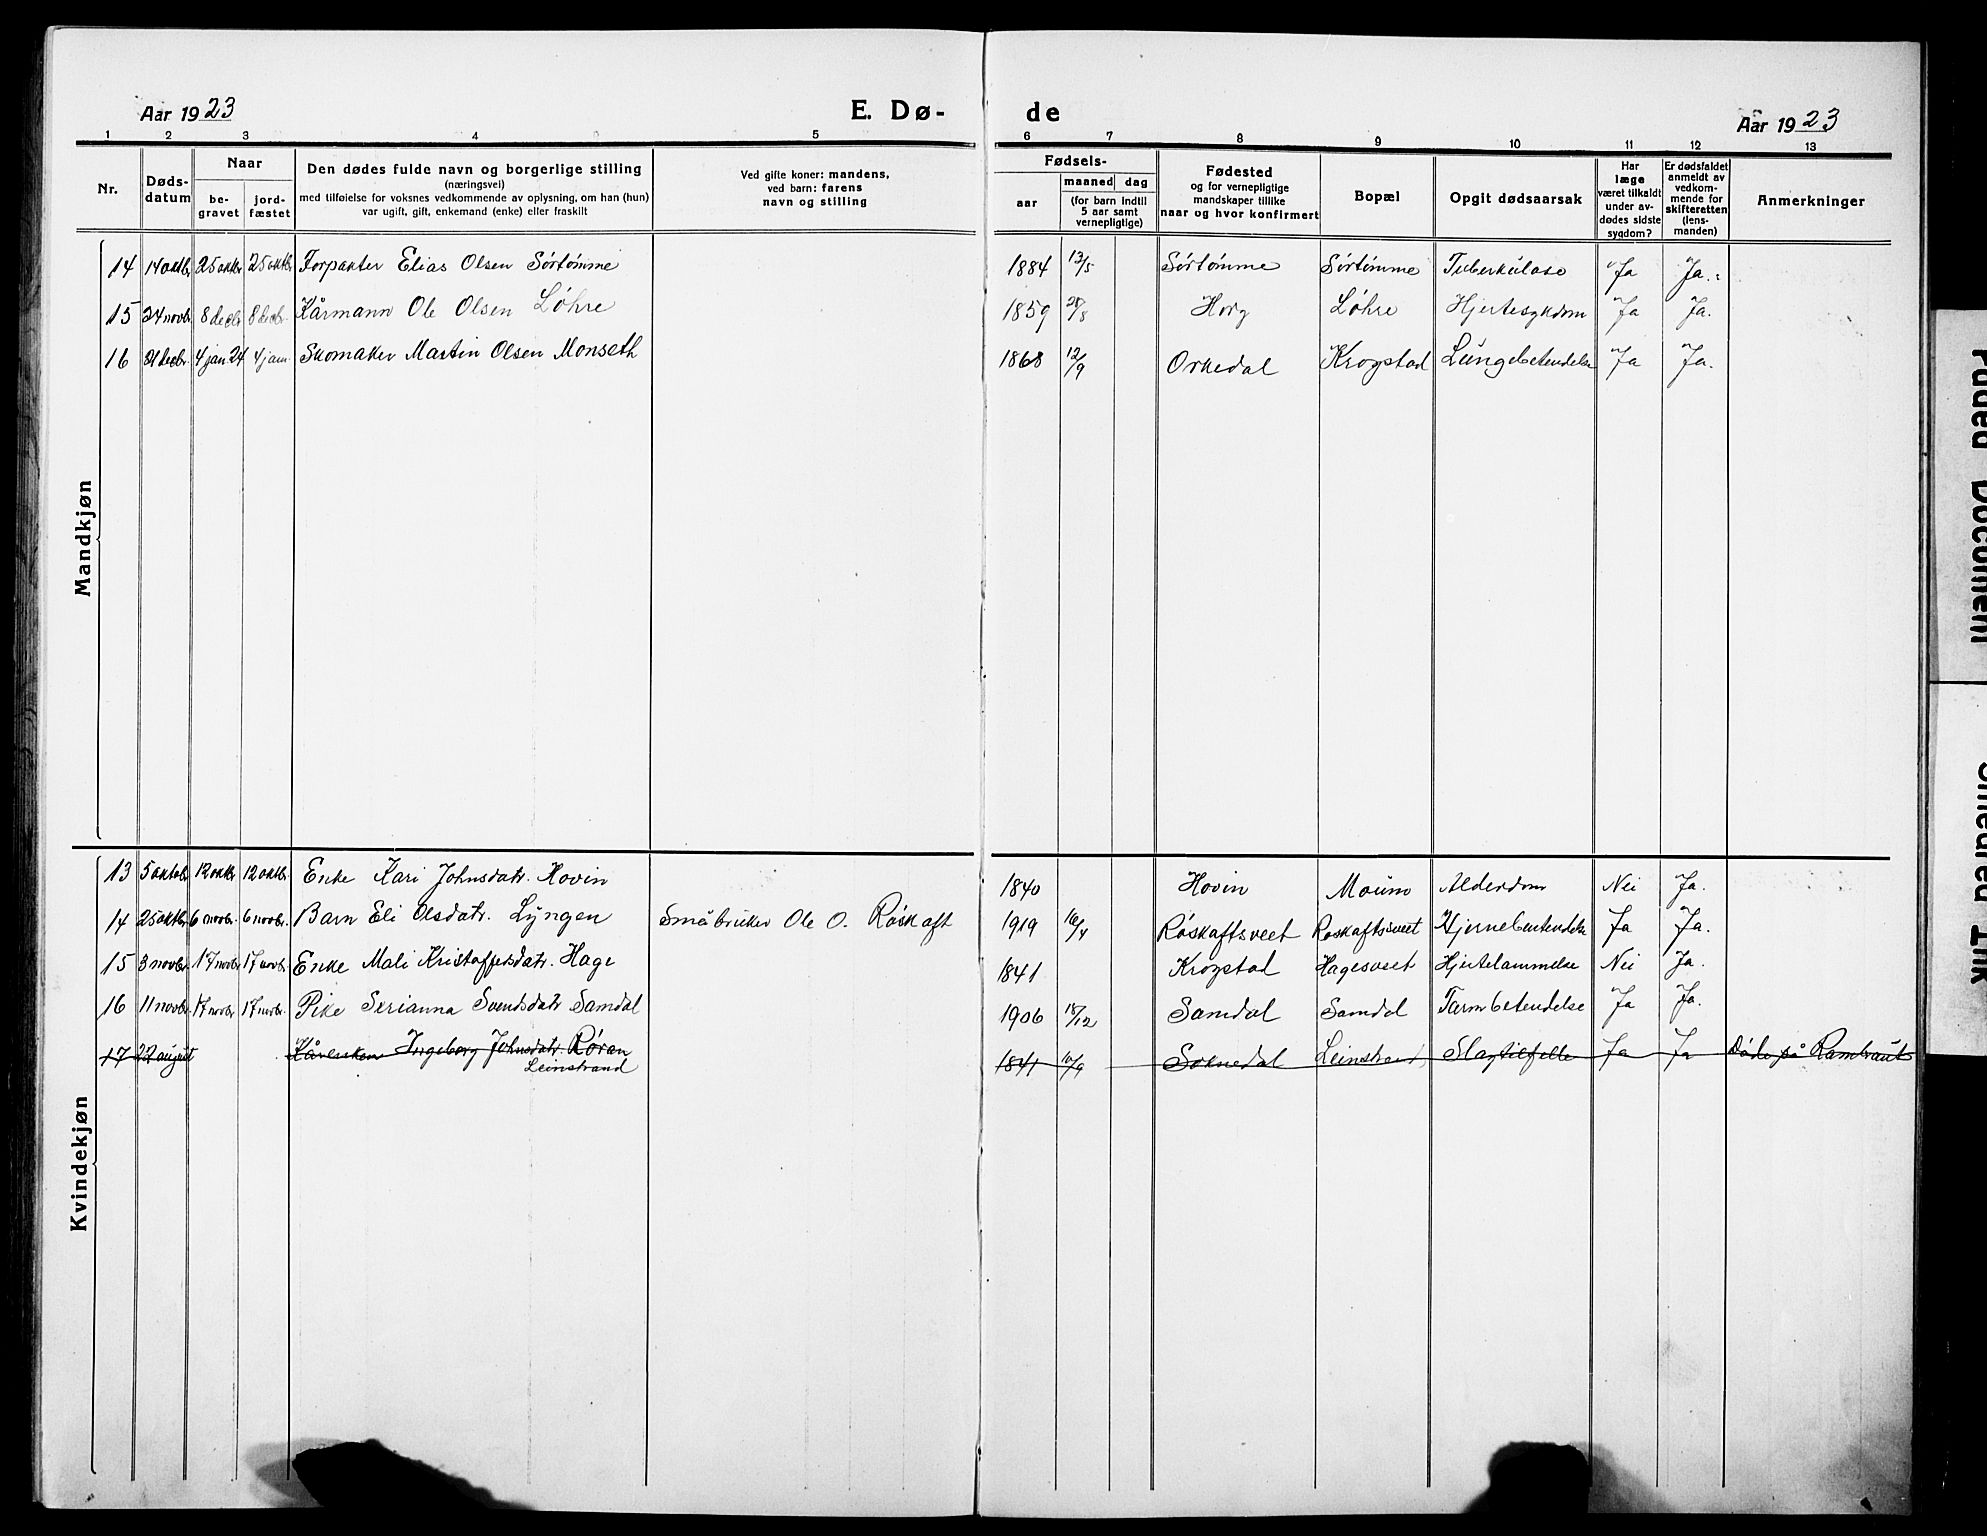 Aar 1923 E. Dø- de Aar 1923
1 2 3 4 5 6 7 8 9 10 11 12 13
Nr.
Døds-
datum
Naar
be-
gravet
jord-
fæstet
Den dødes fulde navn og borgerlige stilling
(næringsvei)
med tilføielse for voksnes vedkommende av oplysning, om han (hun)
var ugift, gift, enkemand (enke) eller fraskilt
Ved gifte koner: mandens,
ved barn: farens
navn og stilling
Fødsels-
aar
maaned dag
(for barn indtil
5 aar samt
vernepligtige)
Fødested
og for vernepligtige
mandskaper tillike
naar og hvor konfirmert
Bopæl
Opgit dødsaarsak
Har
læge
været tilkaldt
under av-
dødes sidste
sygdom?
Er dødsfaldet
anmeldt av
vedkom-
mende for
skifteretten
(lens-
manden)
Anmerkninger
Mandkjøn
14 14 oktbr 25 oktbr 25 oktbr Forpakter Elias Olsen Sørtømme 1884 13/5 Sørtømme Sørtømme Tuberkulose Ja Ja.
15 24 novbr 8 decbr 8 decbr. Kårmann Ole Olsen Løhre 1859 28/8 Horg Løhre Hjertesykdom Ja Ja.
16 31 decbr. 4 jan 24 4 jan. Skomaker Martin Olsen Monseth 1868 12/9 Orkedal Krogstad Lungebetendelse Ja Ja.
Kvindekjøn
13 5 oktobr 12 oktbr 12 oktbr. Enke Kari Johnsdatr. Hovin 1840 Hovin Moumo Alderdom Nei Ja.
14 25 oktbr 6 novbr. 6 novbr. Barn Eli Olsdatr. Lyngen Småbruker Ole O. Røskaft 1919 16/4 Røskaftsveet Røskaftsveet Hjernebetendelse Ja Ja.
15 3 novbr. 17 novbr 17 novbr. Enke Mali Kristoffersdatr. Hage 1841 Krogstad Hagesveet Hjertelammelse Nei Ja.
16 11 novbr. 17 novbr 17 novbr. Pike Serianna Svendsdatr Samdal 1906 18/12 Samdal Samdal Tarmbetendelse Ja Ja.
17 22 august Kårenke Ingeborg Johnsdatr. Røran 1841 10/9 Soknedal Leinstrand Slagtilfelle Ja Ja Døde på Ramlraut
Leinstrand
Faded Document
Smeared Ink